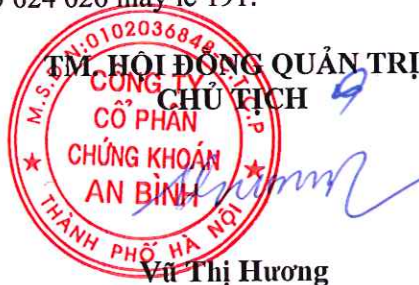 624 626 máy lẻ 191.
TM. HỘI ĐỒNG QUẢN TRỊ
CHỦ TỊCH
M.S.D.N:0102036848.C.T.C.P
CÔNG TY
CỔ PHẦN
CHỨNG KHOÁN
AN BÌNH
THÀNH PHỐ HÀ NỘI
Vũ Thị Hương